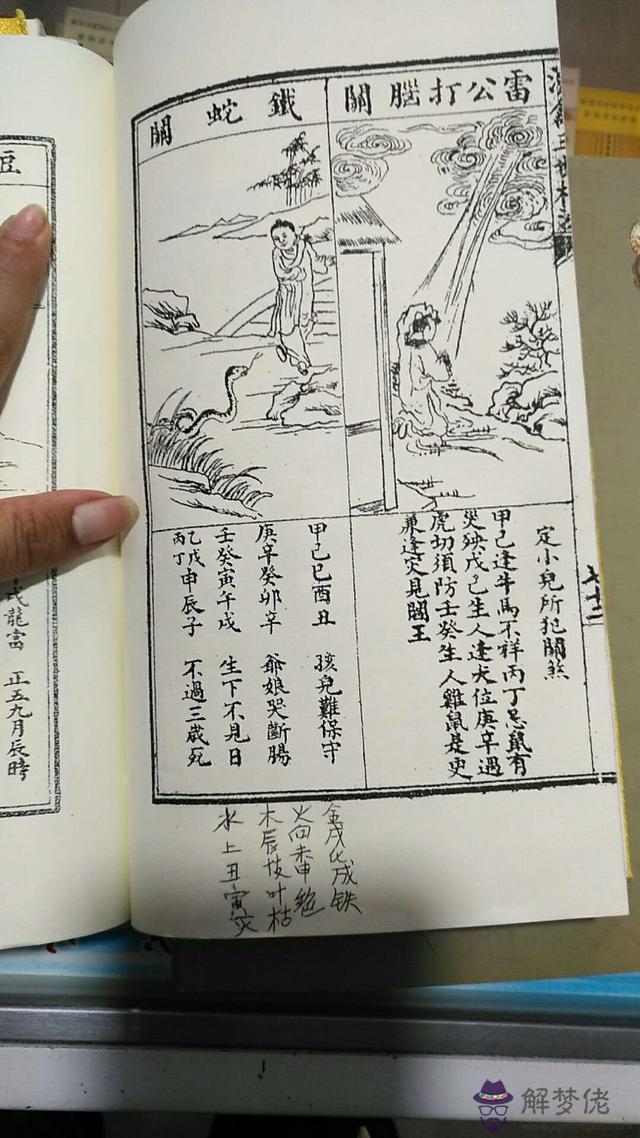 雷公打腦關
定小兒所犯關煞
甲己逢牛馬不祥丙丁忌鼠有
災殃戊己生人逢犬位庚辛遇
虎切須防壬癸生人雞鼠是更
兼逢灾見閻王
鐵蛇關
甲己巳酉丑 孩兒難保守
庚辛癸卯辛 爺娘哭斷腸
壬癸寅午戌 生下不見日
乙戊申辰子 不過三歲死
丙丁
七十二
金戌化成铁
火向未申絕
木辰枝叶枯
水上丑寅灾
戌龍富 正五九月辰時
解梦佬